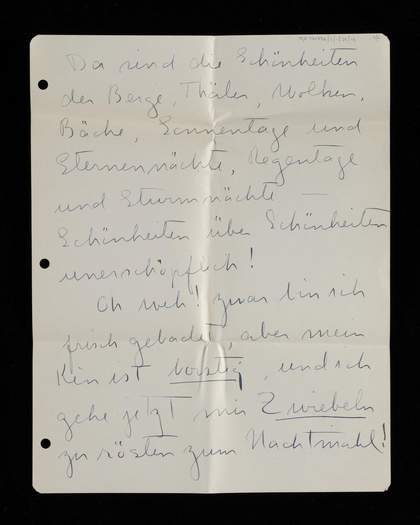 Da sind die Schönheiten
der Berge, Thäler, Wolken,
Bäche, Sonnentage und
Sternennächte, Regentage
und Sturmnächte —
Schönheiten über Schönheiten
unerschöpflich!
Oh weh! zwar bin ich
frisch gebadet, aber mein
Kin ist borstig, und ich
gehe jetzt mir Zwiebeln
zu rösten zum Nachtmahl!